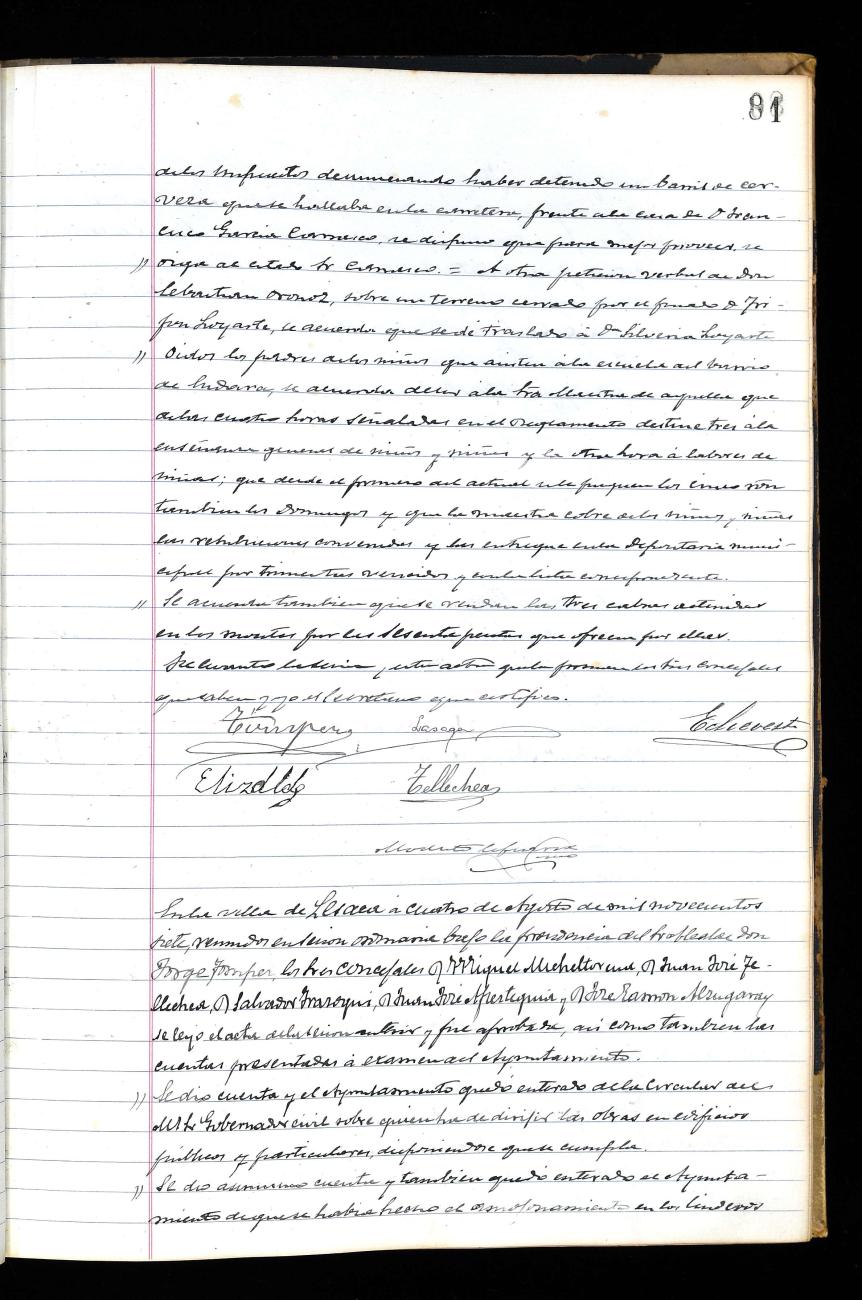 81
de los Impuestos denunciando haber detenido un barril de cer-
veza que se hallaba en la carretera, frente a la casa de Dn Fran-
cisco Garcia Carrasco, se dispuso que para mejor proveer, se
" oiga al citado Sr Carrasco. = A otra peticion verbal de Don
Sebastian Oronoz, sobre un terreno cerrado por el finado D. Tri-
fon Loyarte, se acuerda que se dé traslado á Dª Silveria Loyarte
" Oidos los padres de los niños que asisten á la escuela del barrio
de, se acuerda decir á la Sra Maestra de aquella que
de las cuatro horas señaladas en el Reglamento destine tres á la
enseñanza general de niños y niñas y la otra hora á labores de
niñas; que desde el primero del actual se le paguen los cinco
tambien los Domingos y que la maestra cobre de los niños y niñas
las retribuciones convenidas y las entregue en la Depositaria muni-
cipal por trimestres vencidos y con la lista correspondiente.
" Se acuerda tambien que se vendan las tres cabras detenidas
en los montes por las sesenta pesetas que ofrecen por ellas.
Se levantó la sesion y esta acta que la firman los Sres concejales
que saben y yo el Secretario que certifico.
Tomper Lasaga Echevest
Elizalde Tellechea
Modesto
En la villa de Lesaca á cuatro de Agosto de mil novecientos
siete, reunidos en sesion ordinaria bajo la presidencia del Sr Alcalde don
Jorge Tomper, los Sres Concejales D. Miguel Micheltorena, D. Juan José Te-
llechea, D. Salvador Irazoqui, D. Juan José Apesteguia y D. José Ramon Alzugaray
se leyó el acta de la sesion anterior y fue aprobada, asi como tambien las
cuentas presentadas á examen del Ayuntamiento.
" Se dio cuenta y el Ayuntamiento quedó enterado de la Circular del
M. I. Sr Gobernador civil sobre quien ha de dirijir las obras en edificios
públicos y particulares, disponiendose que se cumpla.
" Se dio asimismo cuenta y tambien quedó enterado el Ayunta-
miento de que se habia hecho el amojonamiento en los linderos